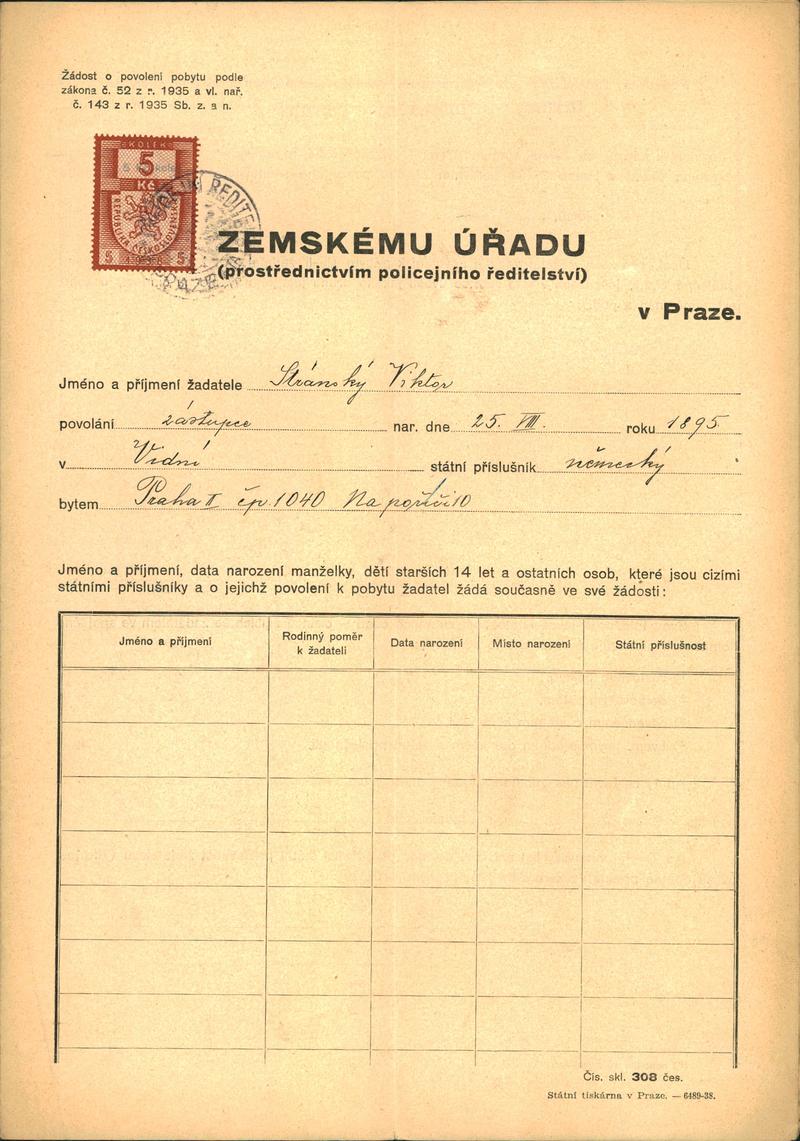 Žádost o povolení pobytu podle
zákona č. 52 z r. 1935 a vl. nař.
č. 143 z r. 1935 Sb. z. a n.
KOLEK
5
Kč
REPUBLIKA ČESKOSLOVENSKÁ
5 5
ZEMSKÉMU ÚŘADU
(prostřednictvím policejního ředitelství)
v Praze.
Jméno a příjmení žadatele Stránský Viktor
povolání zástupce nar. dne 25. VIII. roku 1895
v Vídni státní příslušník německý
bytem Praha II čp. 1040 Na poříčí 10
Jméno a příjmení, data narození manželky, dětí starších 14 let a ostatních osob, které jsou cizími
státními příslušníky a o jejichž povolení k pobytu žadatel žádá současně ve své žádosti:
Jméno a příjmení Rodinný poměr k žadateli Data narození Místo narození Státní příslušnost
Čís. skl. 308 čes.
Státní tiskárna v Praze. — 6489-38.